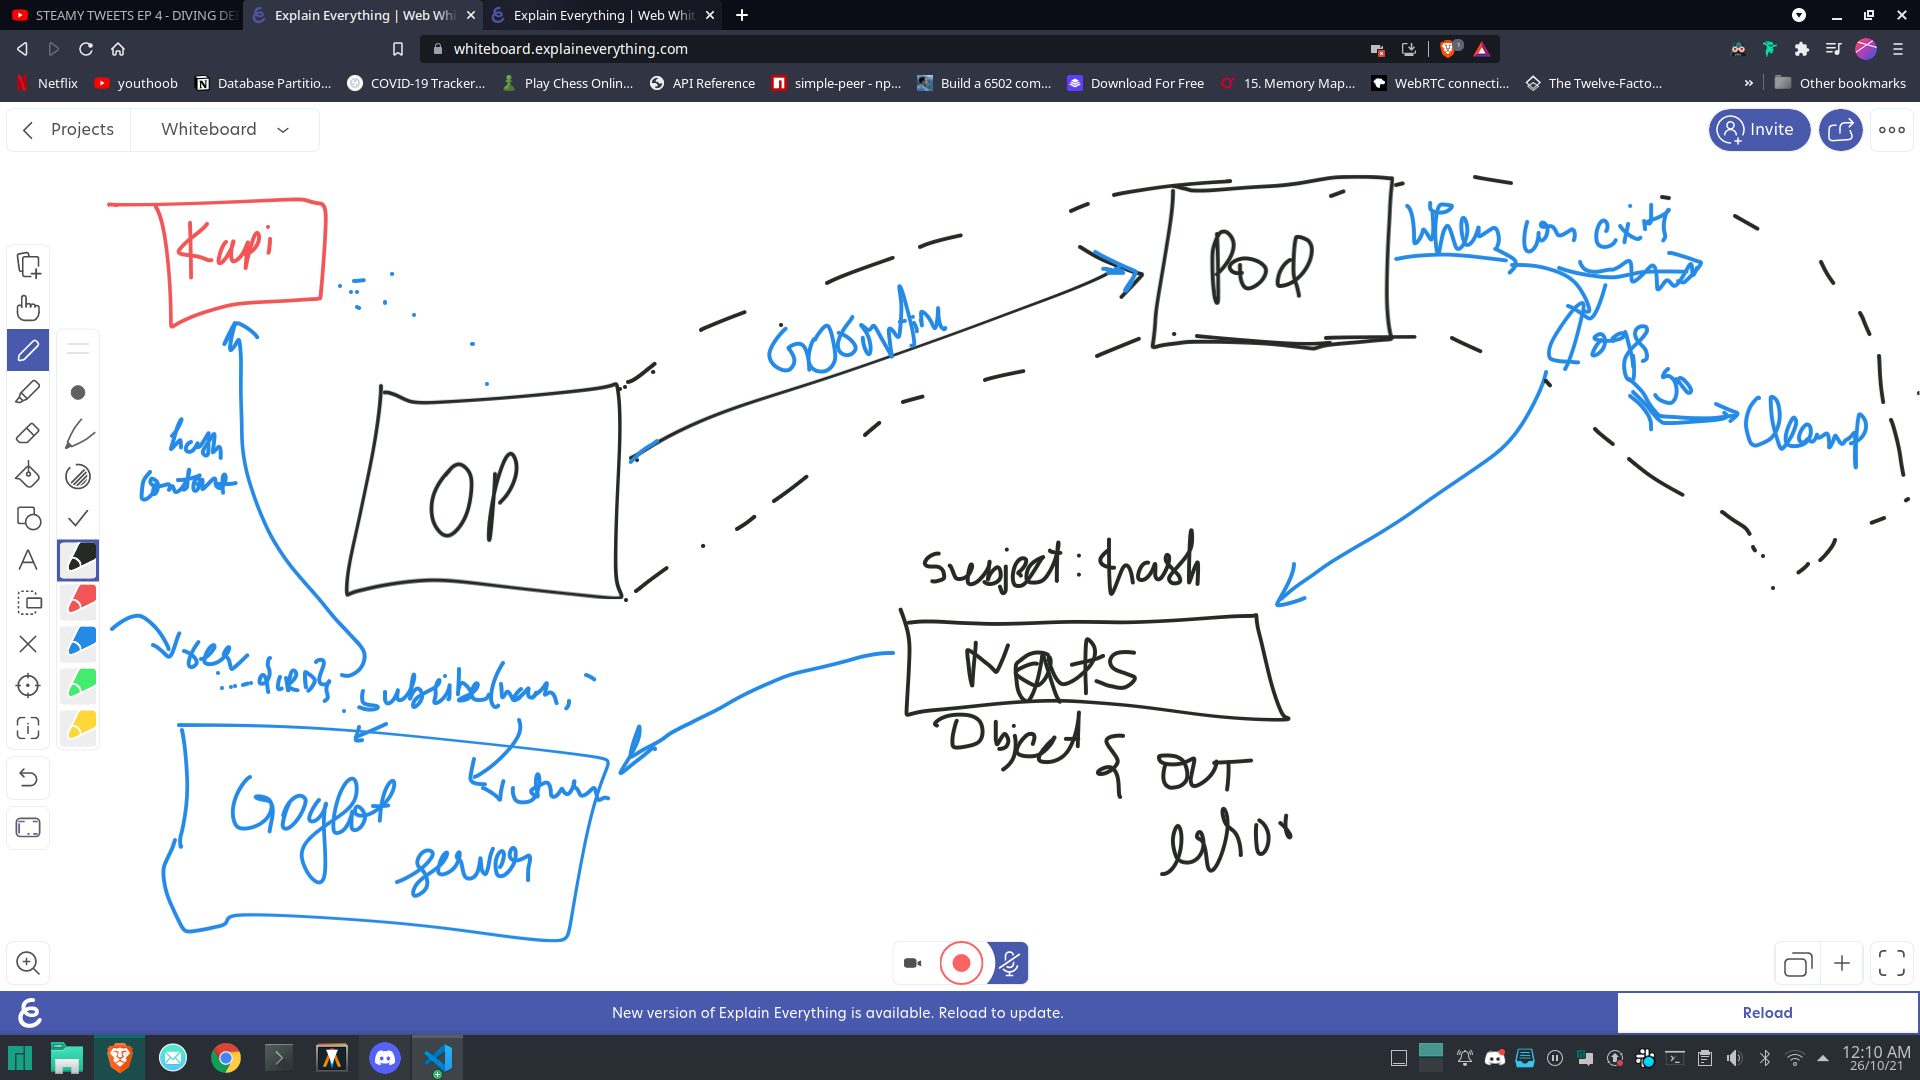 STEAMY TWEETS EP 4 - DIVING DE
Explain Everything | Web Whi
Explain Everything | Web Whit
whiteboard.explaineverything.com
1
Netflix
youthoob
Database Partitio...
COVID-19 Tracker...
Play Chess Onlin...
API Reference
simple-peer - np...
Build a 6502 com...
Download For Free
15. Memory Map...
WebRTC connecti...
The Twelve-Facto...
»
Other bookmarks
Projects
Whiteboard
Invite
Kapi
Pod
When con exits
Logs
go
Cleanup
hash
content
OP
Subject: hash
Nats
Object { OUT
error
res
{CRD}
subscribe(hash,
return
Goglot
server
New version of Explain Everything is available. Reload to update.
Reload
12:10 AM
26/10/21